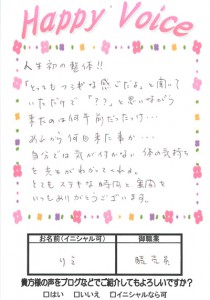 Happy Voice
人生初の整体!!
「とってもつらそうな感じだよ」と聞いて
いただけで「??」と思いながら
来たのは何年前だったけ…
あれから何回来た事か…
自分では気が付かない体の気持ち
を
とてもステキな時間と空間を
いつもありがとうございます。
お名前(イニシャル可)
御職業
りえ
販売員
貴方様の声をブログなどでご紹介してもよろしいですか?
□はい □いいえ □イニシャルなら可